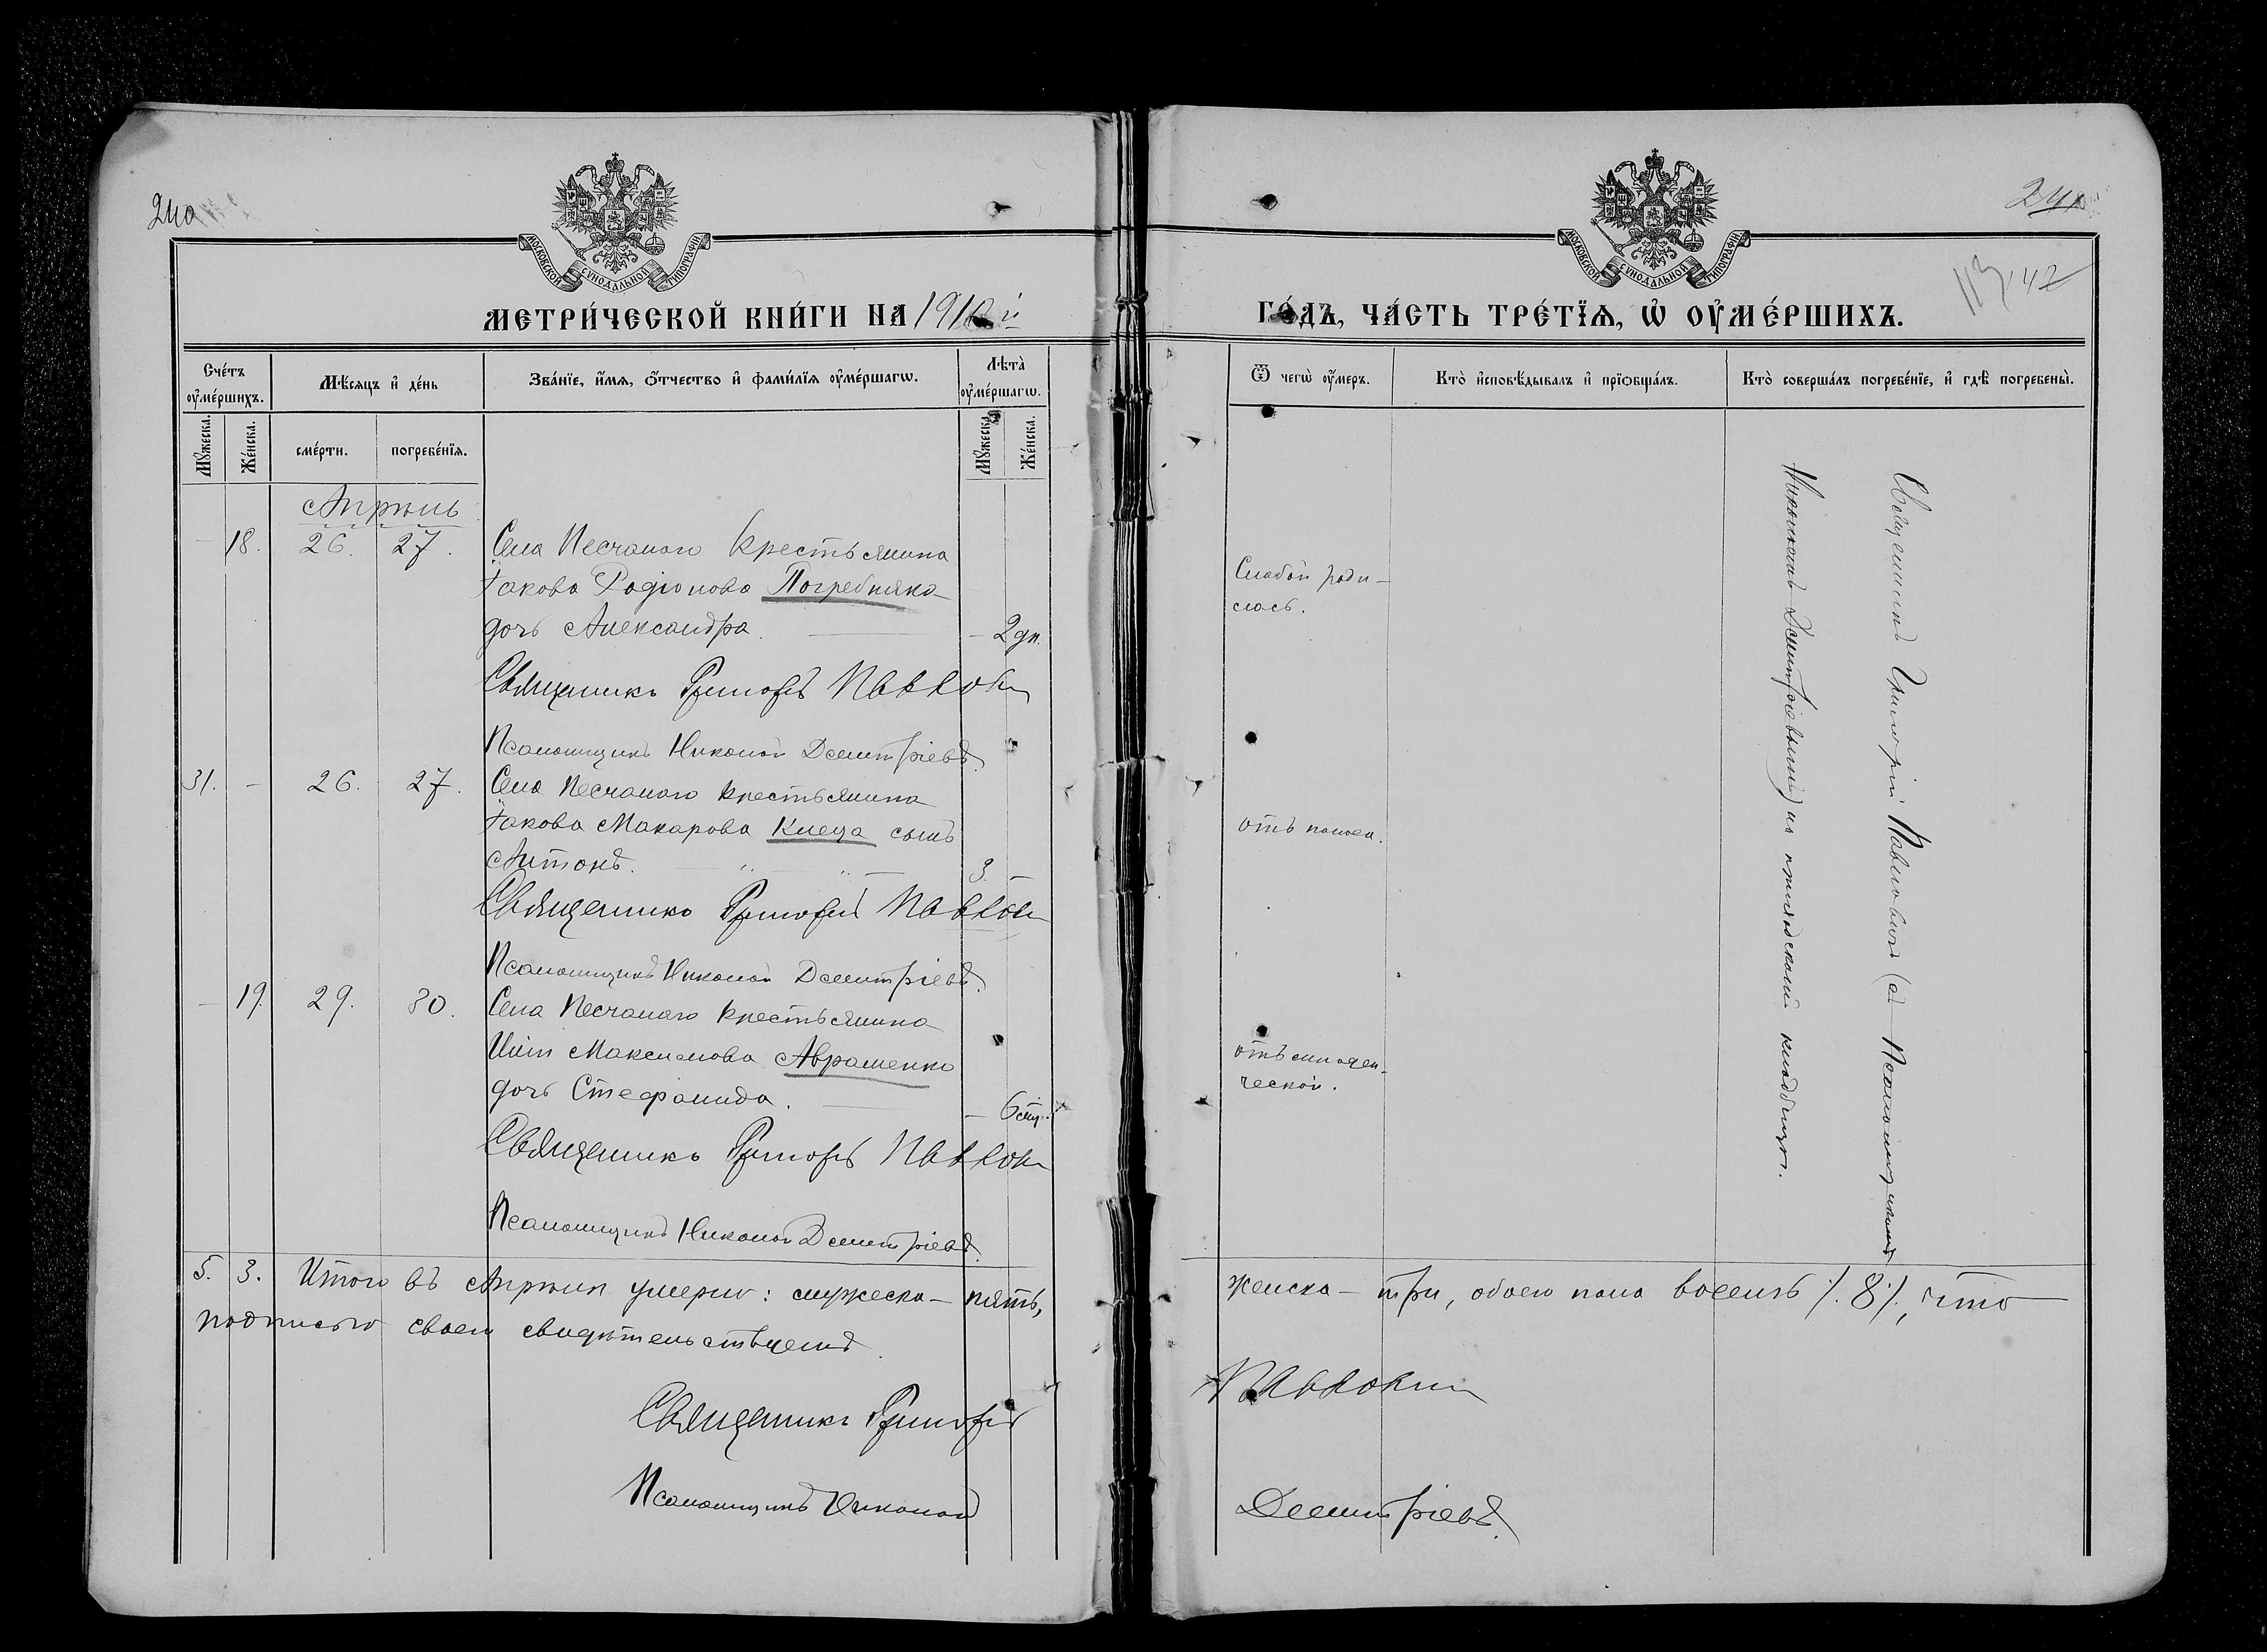 240
МОСКОВСКОЙ СѴНОДАЛЬНОЙ ТИПОГРАФІИ
МЕТРИ́ЧЕСКОЙ КНИ́ГИ НА 1910 й
Сче́тъ оу҆ме́ршихъ.
Мѣ́сяцъ и҆ де́нь
Зва́нїе, и҆́мѧ, ѻ҆́тчество и҆ фами́лїѧ оу҆ме́ршагѡ.
Лѣ́та оу҆ме́ршагѡ.
Мꙋ́жеска.
Же́нска.
сме́рти.
погребе́нїѧ.
Мꙋ́жеска.
Же́нска.
Апрѣль
— 18. 26. 27. Села Песчанаго крестьянина
Іакова Родіонова Погребняка
дочь Александра. — 2 дн.
Священникъ Григорій Павлов
Псаломщикъ Николай Демитріевъ.
31. — 26. 27. Села Песчанаго крестьянина
Іакова Макарова Клеца сынъ
Антонъ. 3. —
Священникъ Григорій Павлов
Псаломщикъ Николай Демитріевъ.
— 19. 29. 30. Села Песчанаго крестьянина
Максимова Авраменко
дочь Стефанида. — 6
Священникъ Григорій Павлов
Псаломщикъ Николай Демитріевъ.
5. 3. Итого въ Апрѣлѣ умерло: мужеска — пять,
подписью своею свидѣтельствуемъ.
Священникъ Григорій
Псаломщикъ Николай
МОСКОВСКОЙ СѴНОДАЛЬНОЙ ТИПОГРАФІИ
42
ГО́ДЪ, ЧА́СТЬ ТРЕ́ТЇѦ, Ѡ҆ ОУ҆МЕ́РШИХЪ.
Ѿ чегѡ̀ оу҆́меръ.
Кто̀ и҆сповѣ́дывалъ и҆ прїѡбща́лъ.
Кто̀ соверша́лъ погребе́нїе, и҆ гдѣ̀ погребены̀.
Слабой роди-
лась.
отъ
отъ младен-
ческой.
Священникъ Григорій Павлович (съ Псаломщикомъ
Николаемъ Демитріевымъ) на приходскомъ кладбищѣ.
женска — три, обоего пола восемь /. 8 /., что
Демитріевъ.